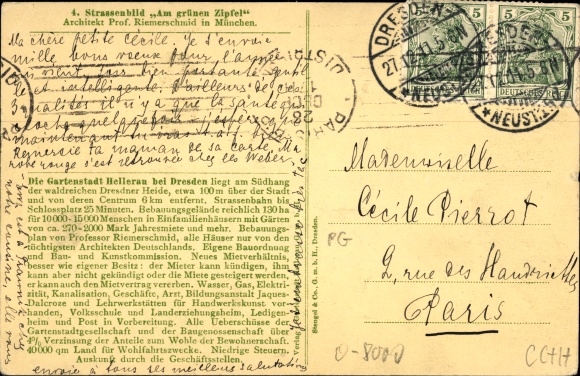 4. Strassenbild „Am grünen Zipfel"
Architekt Prof. Riemerschmid in München.
Ma chère petite Cécile. Je t'envoie
mille bons vœux pour l'année
qui vient, sois bien portante, gentille
et intelligente. D'ailleurs de ces
3 qualités il n'y a que la santé qui
cloche quelquefois
maintenant
Remercie ta maman de sa carte. Ma
robe rouge s'est retrouvée chez les Weber.
Die Gartenstadt Hellerau bei Dresden liegt am Südhang
der waldreichen Dresdner Heide, etwa 100 m über der Stadt
und von deren Centrum 6 km entfernt. Strassenbahn bis
Schlossplatz 25 Minuten. Bebauungsgelände reichlich 130 ha
für 10000-15000 Menschen in Einfamilienhäusern mit Gärten
von ca. 270-2000 Mark Jahresmiete und mehr. Bebauungs-
plan von Professor Riemerschmid, alle Häuser nur von den
tüchtigsten Architekten Deutschlands. Eigene Bauordnung
und Bau- und Kunstkommission. Neues Mietverhältnis,
besser wie eigener Besitz: der Mieter kann kündigen, ihm
kann aber nicht gekündigt oder die Miete gesteigert werden,
er kann auch den Mietvertrag vererben. Wasser, Gas, Elektri-
zität, Kanalisation, Geschäfte, Arzt, Bildungsanstalt Jaques-
Dalcroze und Lehrwerkstätten für Handwerkskunst vor-
handen, Volksschule und Landerziehungsheim, Ledigen-
heim und Post in Vorbereitung. Alle Ueberschüsse der
Gartenstadtgesellschaft und der Baugenossenschaft über
4% Verzinsung der Anteile zum Wohle der Bewohnerschaft.
40000 qm Land für Wohlfahrtszwecke. Niedrige Steuern.
Auskunft durch die Geschäftsstellen.
envoie à tous ses meilleurs salutations
notre cousine, elle vous
Stengel & Co., G. m. b. H., Dresden
DRESDEN
27.12.11. 5-6N
*NEUSTADT
5
5
DEUTSCHES REICH
*NEUSTADT
PARIS
DISTRIB
28
DEC
Mademoiselle
Cécile Pierrot
2, rue des Haudriettes
Paris
PG
0-8000
CCHH